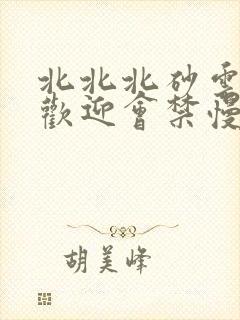 北北北砂雲
歡迎會禁慢
胡美峰